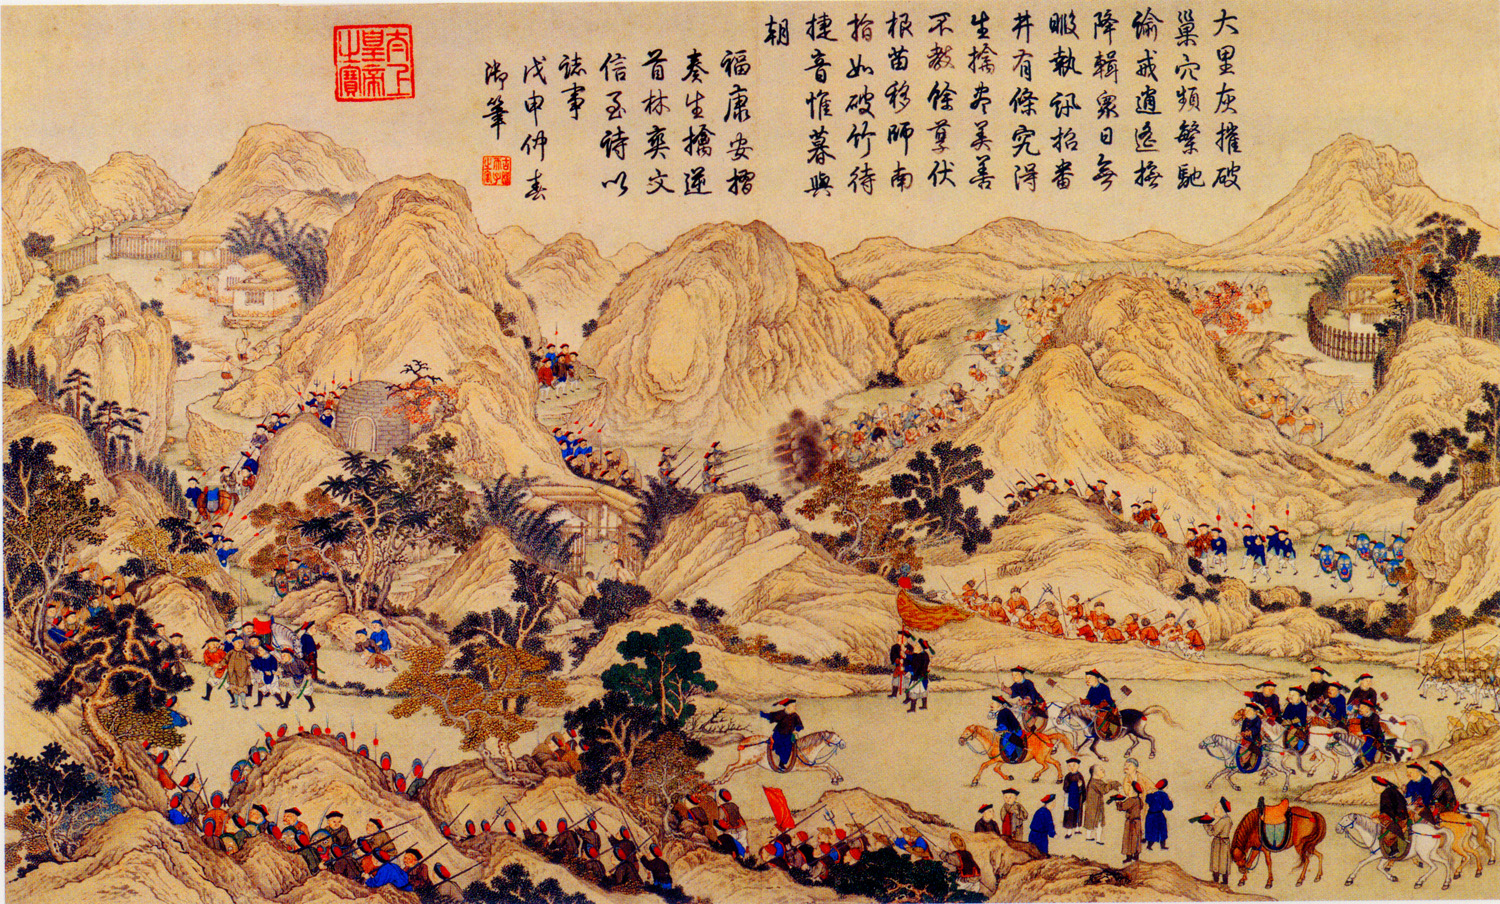 大里灰摧破
巢穴頻繁馳
諭戒逍遙撫
降輯衆日無
暇執訊招番
井有條究得
生擒尽美善
不教餘孽伏
根苗移師南
指如破竹待
捷音惟暮與
朝
福康安摺
奏生擒逆
首林爽文
信至詩以
誌事
戊申仲春
御筆
太上
皇帝
之寶